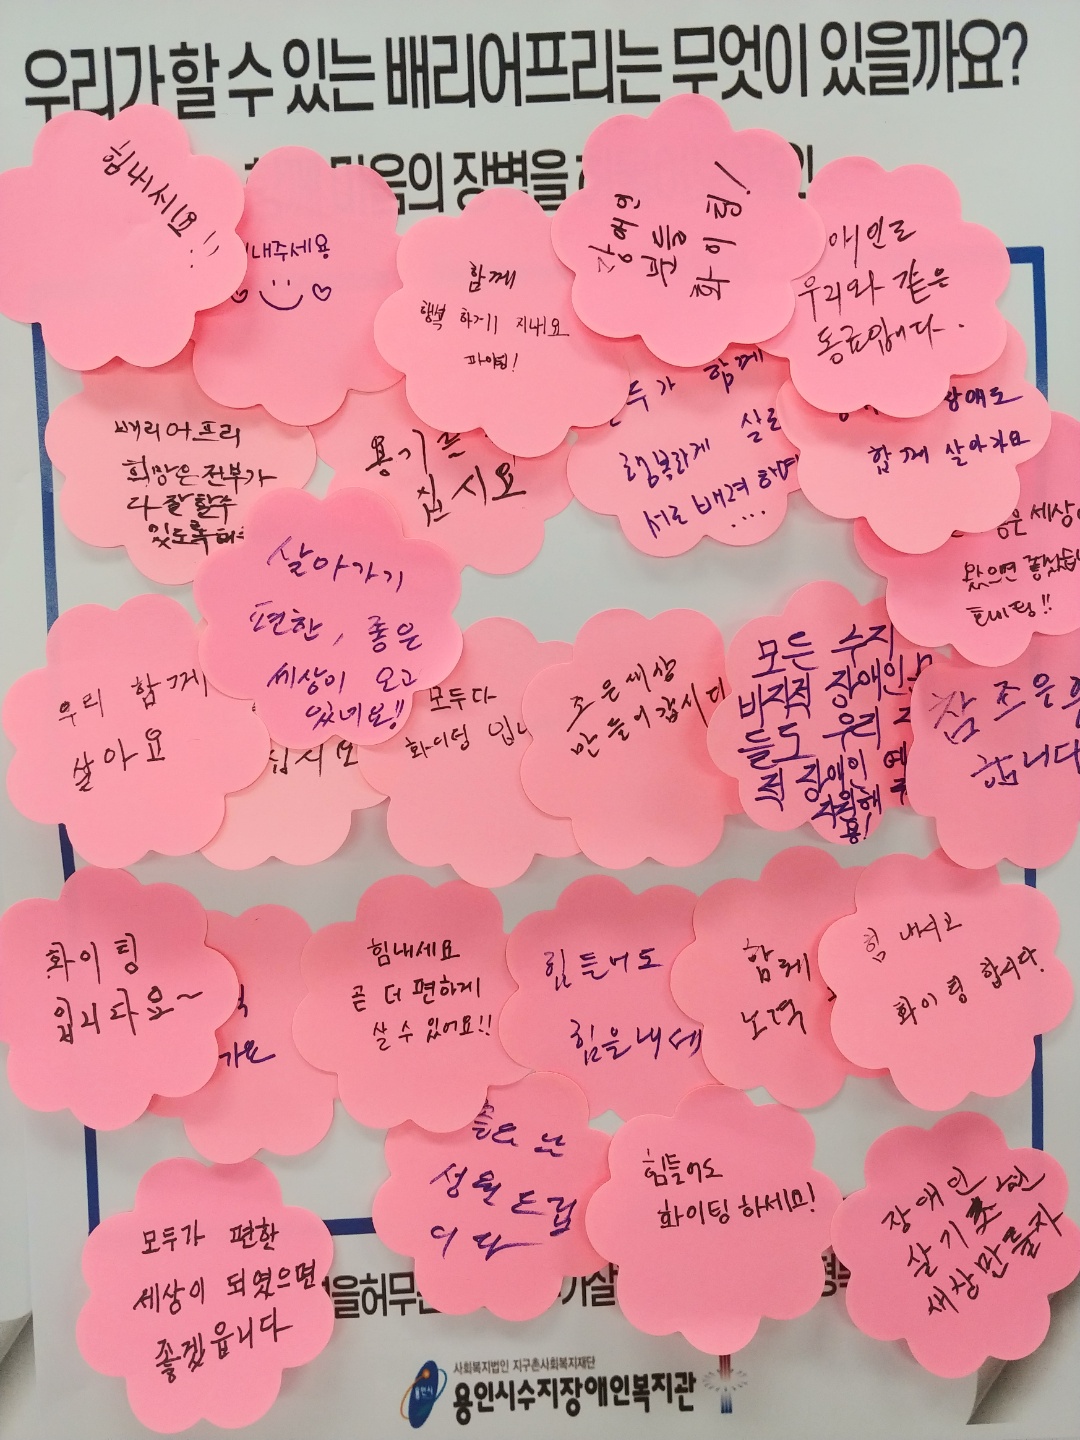 우리가 할 수 있는 배리어프리는 무엇이 있을까요?
장벽을
힘내세요!!
내주세용
함께
행복 하게 지내요
파이팅!
장애인
분들
화이팅!
우리와 같은
동료입니다.
배리어프리
희망은 전부가
다 잘할수
있도록
십시요
함께
살
서로 배려 하며
....
함께 살아가요
세상
왔으면 좋겠습
화이팅!!
살아가기
편한, 좋은
세상이 오고
있네요!!
우리 함께
살아요
십시요
모두다
화이팅 입니
조은세상
만들어갑시다
모든 수지
바직적 장애인
들도 우리
적 장애인
지원해
용!
참 조은
합니다
화이팅
입니다요~
가요
힘내세요
곧 더 편하게
살 수 있어요!!
힘들어도
힘을내세
함께
노력
힘 내시고
화이팅 합시다.
성원드립
니다
힘들어도
화이팅 하세요!
장애인
살기 좋은
새상만들자
모두가 편한
세상이 되였으면
좋겠읍니다
사회복지법인 지구촌사회복지재단
용인시
용인시수지장애인복지관